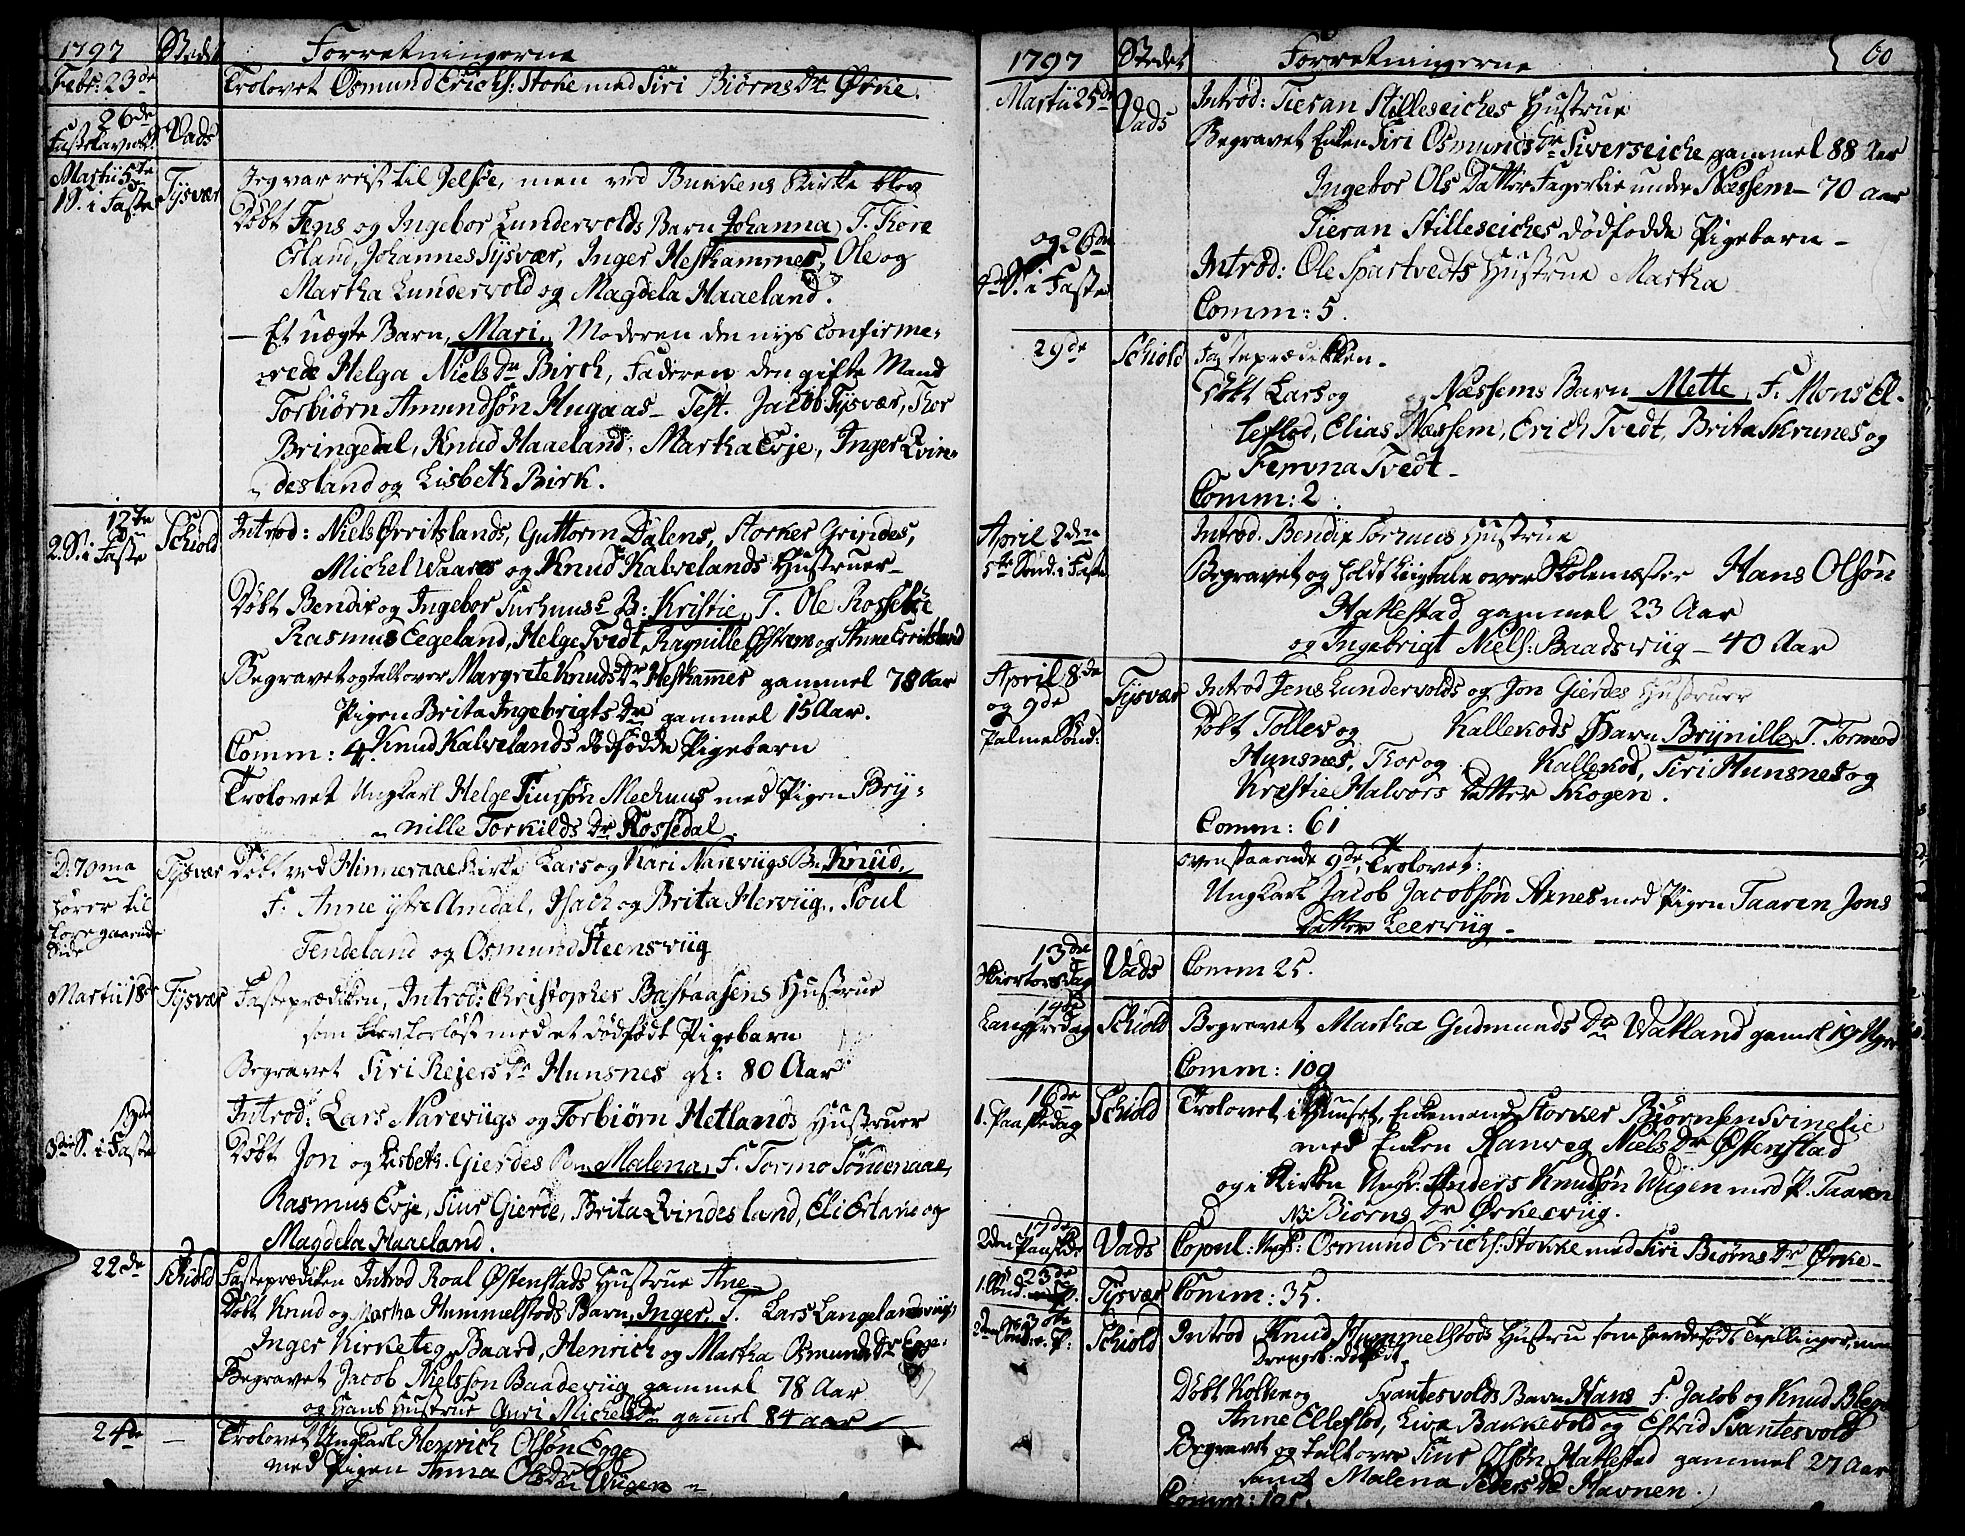 1797 Stedet Forretningerne
Febr: 23de Trolovet Osmund Erichs: Stoke med Siri Biørns Dr Ørke.
26de
Fastelavns S. Vads
Martii 5te Jeg var reist til Jelsøe, men ved Bukkens Kirke blev
1 S. i Faste Tysvær Døbt Jens og Ingebor Lundervolds Barn Johanna, T. Thore
Erland, Johannes Tysvær, Inger Heskammes, Ole og
Martha Lundervold og Magdela Haaeland.
— Et uægte Barn, Mari, Moderen den nys confirme-
rede Helga Niels Dr Birch, Faderen den gifte Mand
Torbiørn Amundsøn Hugaas — Test. Jacob Tysvær, Thor
Bringedal, Knud Haaeland, Martha Evje, Inger Qvin-
desland og Lisbeth Birk.
12te
2. S. i Faste Schiold Introd: Niels Ørritslands, Guttorm Dalens, Storker Grindes,
Michel Waares og Knud Kalvelands Hustruer —
Døbt Bendix og Ingebor B: Kristie, T. Ole Rossebøe
Rasmus Eegeland, Helge Tvedt, Ragnille og Anne Erritsland
Begravet og talt over Margrete Knuds Dr Heskammes gammel 78 Aar
Pigen Brita Ingebrigts Dr gammel 15 Aar.
Comm: 4. Knud Kalvelands dødfødde Pigebarn
Trolovet Ungkarl Helge Siursøn Mechuus med Pigen Bry-
nille Torkilds Dr Rossedal.
D: 70ma Tysvær Døbt ved Hinneraae Kirke Lars og Kari Narevigs B. Knud,
hører til
foregaaende
Side
F. Anne Amdal, Isach og Brita Hervig, Poul
Fendeland og Osmund Steensviig
Martii 18de Tysvær Fasteprædiken, Introd: Christopher Bastaasens Hustrue
som blev forløst med et dødfødt Pigebarn
Begravet Siri Rejers Dr Hunsnes gl: 80 Aar
19de Introd: Lars Narevigs og Torbiørn Hetlands Hustruer
3die S. i Faste Døbt Jon og Lisbeth Gierdes Barn Malena, F. Tormo Søndenaae,
Rasmus Evje, Siur Gierde, Brita Qvindesland, Eli Erland og
Magdela Haaeland.
22de Schiold Fasteprædiken Introd Roal Østenstads Hustrue Ane —
Døbt Knud og Martha Hummelstods Barn, Inger, T. Lars Langelandsviig
Inger Kirketeg, Baard, Henrich og Martha Osmunds Dr Egge.
Begravet Jacob Nielssøn Baadeviig gammel 78 Aar
og hans Hustrue Guri Michels Dr gammel 84 aar
24de — Trolovet Ungkarl Henrich Olsøn Egge
med Pigen Anna Ols Dr Wiigen —
1797 Stedet Forretningerne 60
Martii 25de Vads Introd: Tieran Stilleseiches Hustrue
Begravet Enken Siri Osmunds Dr Siverseiche gammel 88 Aar
Ingebor Ols Datter Fagerlie under Næssem — 70 aar
Tieran Stilleseiches dødfødde Pigebarn —
og 26de
4de S. i Faste Introd: Ole Spartvedts Hustrue Martha
Comm: 5.
29de Schiold Fasteprædikken.
Døbt Lars og Næssems Barn Mette, F. Mons El-
lefsød, Elias Næssem, Erich Tvedt, Brita Skrunes og
Tvedt —
Comm: 2.
April 2den
5te Sønd. i Faste Introd. Bendix Hustrue
Begravet og holdt Liigtale over Skolemester Hans Olsøn
Hatlestad gammel 23 Aar
og Ingebrigt Niels: Baadsviig — 40 Aar
April 8de
og 9de
Palme Sønd: Tysvær Introd Jens Lundervolds og Jon Gierdes Hustruer
Døbt Tollev og Kallekods Barn Brynille, T. Tormod
Hunsnes, Thor og Kallekod, Siri Hunsnes og
Kræstie Halvors Datter Skogen.
Comm: 61
ovenstaaende 9de Trolovet:
Ungkarl Jacob Jacobsøn Axnes med Pigen Taaren Jons
Datter Leerviig —
13de
Skiertorsdag Vads Comm 25.
14de
Langfredag Schiold Begravet Martha Gudmunds Dr Watland gamel 19 Uger
Comm: 109
16de
1. Paaskedag Schiold Trolovet i Huuset, Enkemand Storker Biørnsen Svinelie
med Enken Ranveg Niels Dr Østenstad
og i Kirken Ungk. Anders Knudsøn Wiigen med P. Taaren
NB: Biørns Dr Ørkesviig.
17de
2den Paaske Vads Copul: Ungk: Osmund Erichs: Stokke med Siri Biørns Dr Ørke —
23de
1. Sønd. P. Tysvær Comm: 35.
30te
2den Sønd. e. P: Schiold Introd Knud Hummelstods Hustru som havde født Tvillinger, men
Drengeb: dødfødt.
Døbt Kolben og Svantesvolds Barn Hans F. Jacob og Knud
Anne Ellefsød, Liva Bakkevold og Estrid Svantesvold
Begravet og talt over Siur Olsøn Hatlestad gammel 27 Aar
samt Malena Peders Dr Havnen.
Comm: 105.